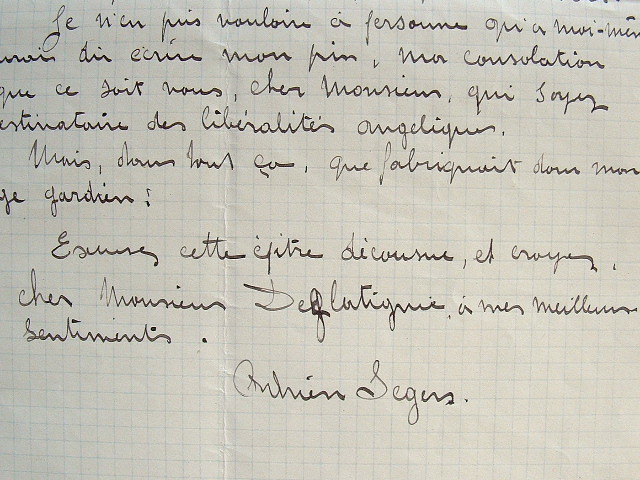 Je n'en puis vouloir à personne qu'à moi-mêm
urais dû écrire mon pin, ma consolation
que ce soit vous, cher Monsieur, qui soyez
estinataire des libéralités angéliques.
Mais, dans tout ça, que fabriquait donc mon
ge gardien?
Excusez cette épître décousue, et croyez,
cher Monsieur Deglatignie, à mes meilleurs
sentiments.
Adrien Segers.